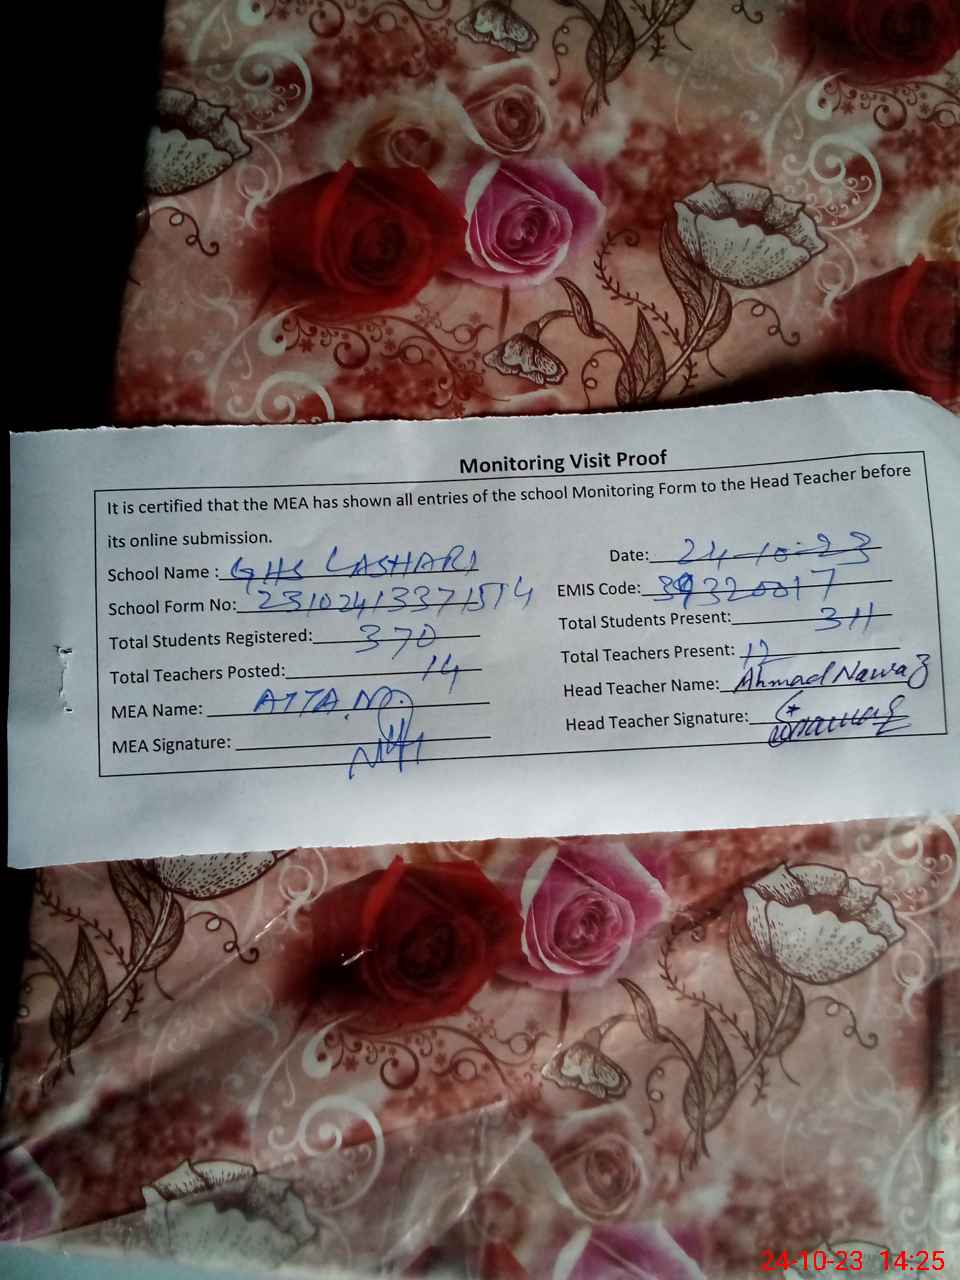 Monitoring Visit Proof
It is certified that the MEA has shown all entries of the school Monitoring Form to the Head Teacher before
its online submission.
School Name : GHS LASHARI Date: 24-10-23
School Form No: 231024133715514 EMIS Code: 39320017
Total Students Registered: 370 Total Students Present: 311
Total Teachers Posted: 14 Total Teachers Present: 12
MEA Name: ATTA Head Teacher Name: Ahmad Nawaz
MEA Signature: Head Teacher Signature:
24-10-23 14:25